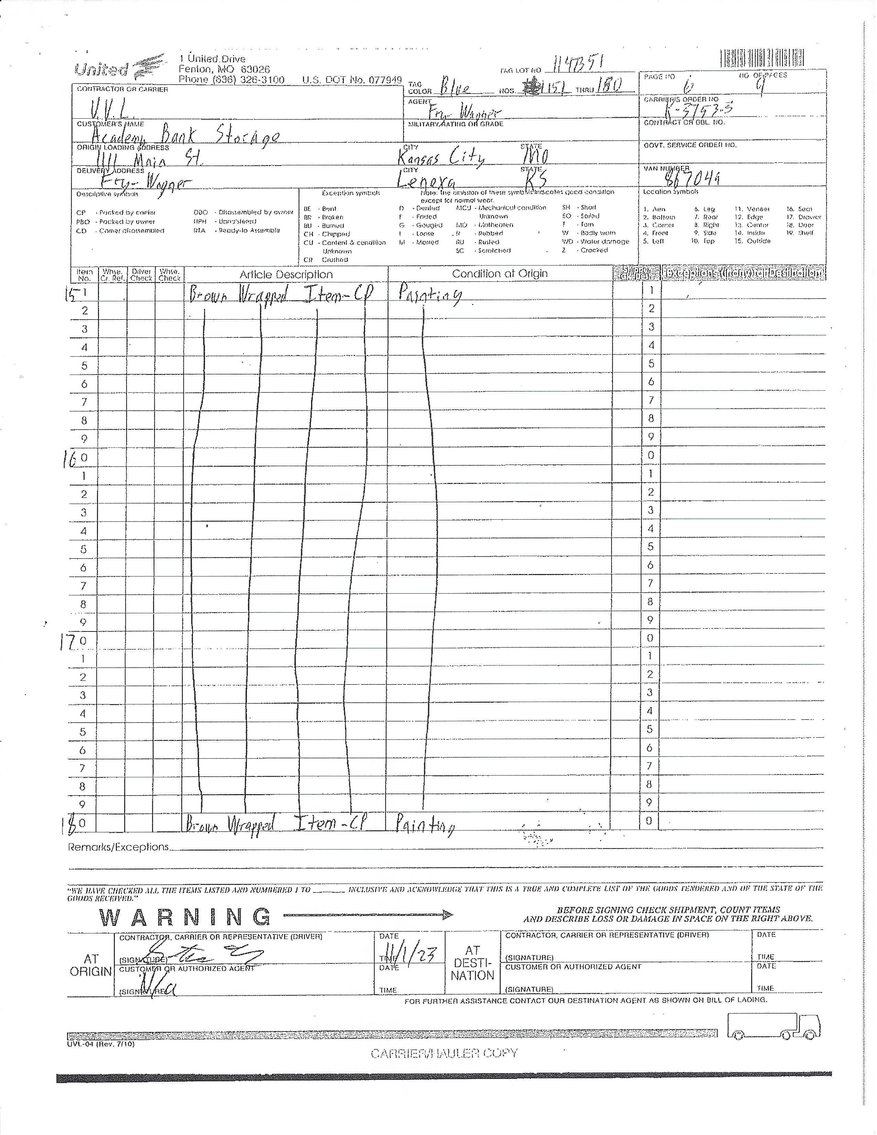 United
1 United Drive
Fenton, MO 63026
Phone (636) 326-3100 U.S. DOT No. 077949
TAG LOT NO. 1147351
TAG COLOR Blue NOS. 151 THRU 180
PAGE NO. 6 NO. OF PAGES 9
CONTRACTOR OR CARRIER
U.V.L.
AGENT
Fry-Wagner
CARRIER'S ORDER NO.
K-3753-3
CUSTOMER'S NAME
Academy Bank Storage
MILITARY RATING OR GRADE
CONTRACT OR GBL. NO.
ORIGIN LOADING ADDRESS
1111 Main St.
CITY
Kansas City
STATE
MO
GOVT. SERVICE ORDER NO.
DELIVERY ADDRESS
Fry-Wagner
CITY
Lenexa
STATE
KS
VAN NUMBER
867049
Descriptive symbols
CP - Packed by carrier
PBO - Packed by owner
CD - Carrier disassembled
DBO - Disassembled by owner
RTA - Ready-to Assemble
Exception symbols
Note: The omission of these symbols indicates good condition except for normal wear.
BE - Bent
BR - Broken
BU - Burned
CH - Chipped
CU - Content & condition Unknown
CR Crushed
D - Dented
F - Faded
G - Gouged
L - Loose
M - Marred
MCU - Mechanical condition Unknown
MO - Motheaten
R - Rubbed
RU - Rusted
SC - Scratched
SH - Short
SO - Soiled
T - Torn
W - Badly worn
WD - Water damage
Z - Cracked
Location symbols
1. Arm
2. Bottom
3. Corner
4. Front
5. Left
6. Leg
7. Rear
8. Right
9. Side
10. Top
11. Veneer
12. Edge
13. Center
14. Inside
15. Outside
16. Seat
17. Drawer
18. Door
19. Shelf
Item No. Whse. Cr. Ref. Driver Check Whse. Check Article Description Condition at Origin Exceptions (if any) at Destination
151 Brown Wrapped Item-CP Painting 1
2 2
3 3
4 4
5 5
6 6
7 7
8 8
9 9
160 0
1 1
2 2
3 3
4 4
5 5
6 6
7 7
8 8
9 9
170 0
1 1
2 2
3 3
4 4
5 5
6 6
7 7
8 8
9 9
180 Brown Wrapped Item-CP Painting 0
Remarks/Exceptions
"WE HAVE CHECKED ALL THE ITEMS LISTED AND NUMBERED 1 TO ______ INCLUSIVE AND ACKNOWLEDGE THAT THIS IS A TRUE AND COMPLETE LIST OF THE GOODS TENDERED AND OF THE STATE OF THE
GOODS RECEIVED."
WARNING
BEFORE SIGNING CHECK SHIPMENT, COUNT ITEMS
AND DESCRIBE LOSS OR DAMAGE IN SPACE ON THE RIGHT ABOVE.
AT ORIGIN
CONTRACTOR, CARRIER OR REPRESENTATIVE (DRIVER)
(SIGNATURE)
DATE
11/1/23
TIME
CUSTOMER OR AUTHORIZED AGENT
N/a
(SIGNATURE)
DATE
TIME
AT DESTI-NATION
CONTRACTOR, CARRIER OR REPRESENTATIVE (DRIVER)
(SIGNATURE)
DATE
TIME
CUSTOMER OR AUTHORIZED AGENT
(SIGNATURE)
DATE
TIME
FOR FURTHER ASSISTANCE CONTACT OUR DESTINATION AGENT AS SHOWN ON BILL OF LADING.
UVL-04 (Rev. 7/10)
CARRIER/HAULER COPY